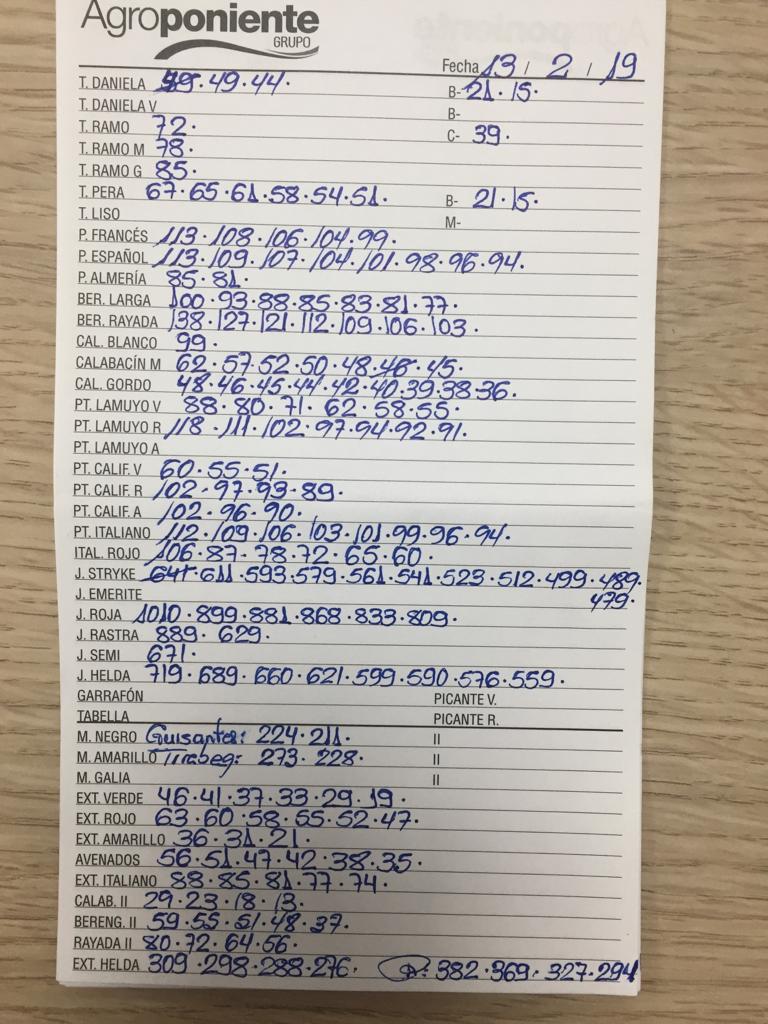 Agroponiente
GRUPO
Fecha 13 / 2 / 19
T. DANIELA 55·49·44· B- 21·15·
T. DANELA V B-
T. RAMO 72· C- 39·
T. RAMO M 78·
T. RAMO G 85·
T. PERA 67·65·61·58·54·51· B- 21·15·
T. LISO M-
P. FRANCÉS 113·108·106·104·99·
P. ESPAÑOL 113·109·107·104·101·98·96·94·
P. ALMERÍA 85·81·
BER. LARGA 100·93·88·85·83·81·77·
BER. RAYADA 138·127·121·112·109·106·103·
CAL. BLANCO 99·
CALABACÍN M 62·57·52·50·48·46·45·
CAL. GORDO 48·46·45·44·42·40·39·38·36·
PT. LAMUYO V 88·80·71·62·58·55·
PT. LAMUYO R 118·111·102·97·94·92·91·
PT. LAMUYO A
PT. CALIF. V 60·55·51·
PT. CALIF. R 102·97·93·89·
PT. CALIF. A 102·96·90·
PT. ITALIANO 112·109·106·103·101·99·96·94·
ITAL. ROJO 106·87·78·72·65·60·
J. STRYKE 641·611·593·579·561·541·523·512·499·489·
J. EMERITE 479·
J. ROJA 1010·899·881·868·833·809·
J. RASTRA 889·629·
J. SEMI 671·
J. HELDA 719·689·660·621·599·590·576·559·
GARRAFÓN PICANTE V.
TABELLA PICANTE R.
M. NEGRO Guisante: 224·211· II
M. AMARILLO Tirabeq: 273·228· II
M. GALIA II
EXT. VERDE 46·41·37·33·29·19·
EXT. ROJO 63·60·58·55·52·47·
EXT. AMARILLO 36·31·21·
AVENADOS 56·51·47·42·38·35·
EXT. ITALIANO 88·85·81·77·74·
CALAB. II 29·23·18·13·
BERENG. II 59·55·51·48·37·
RAYADA II 80·72·64·56·
EXT. HELDA 309·298·288·276· 382·369·327·294